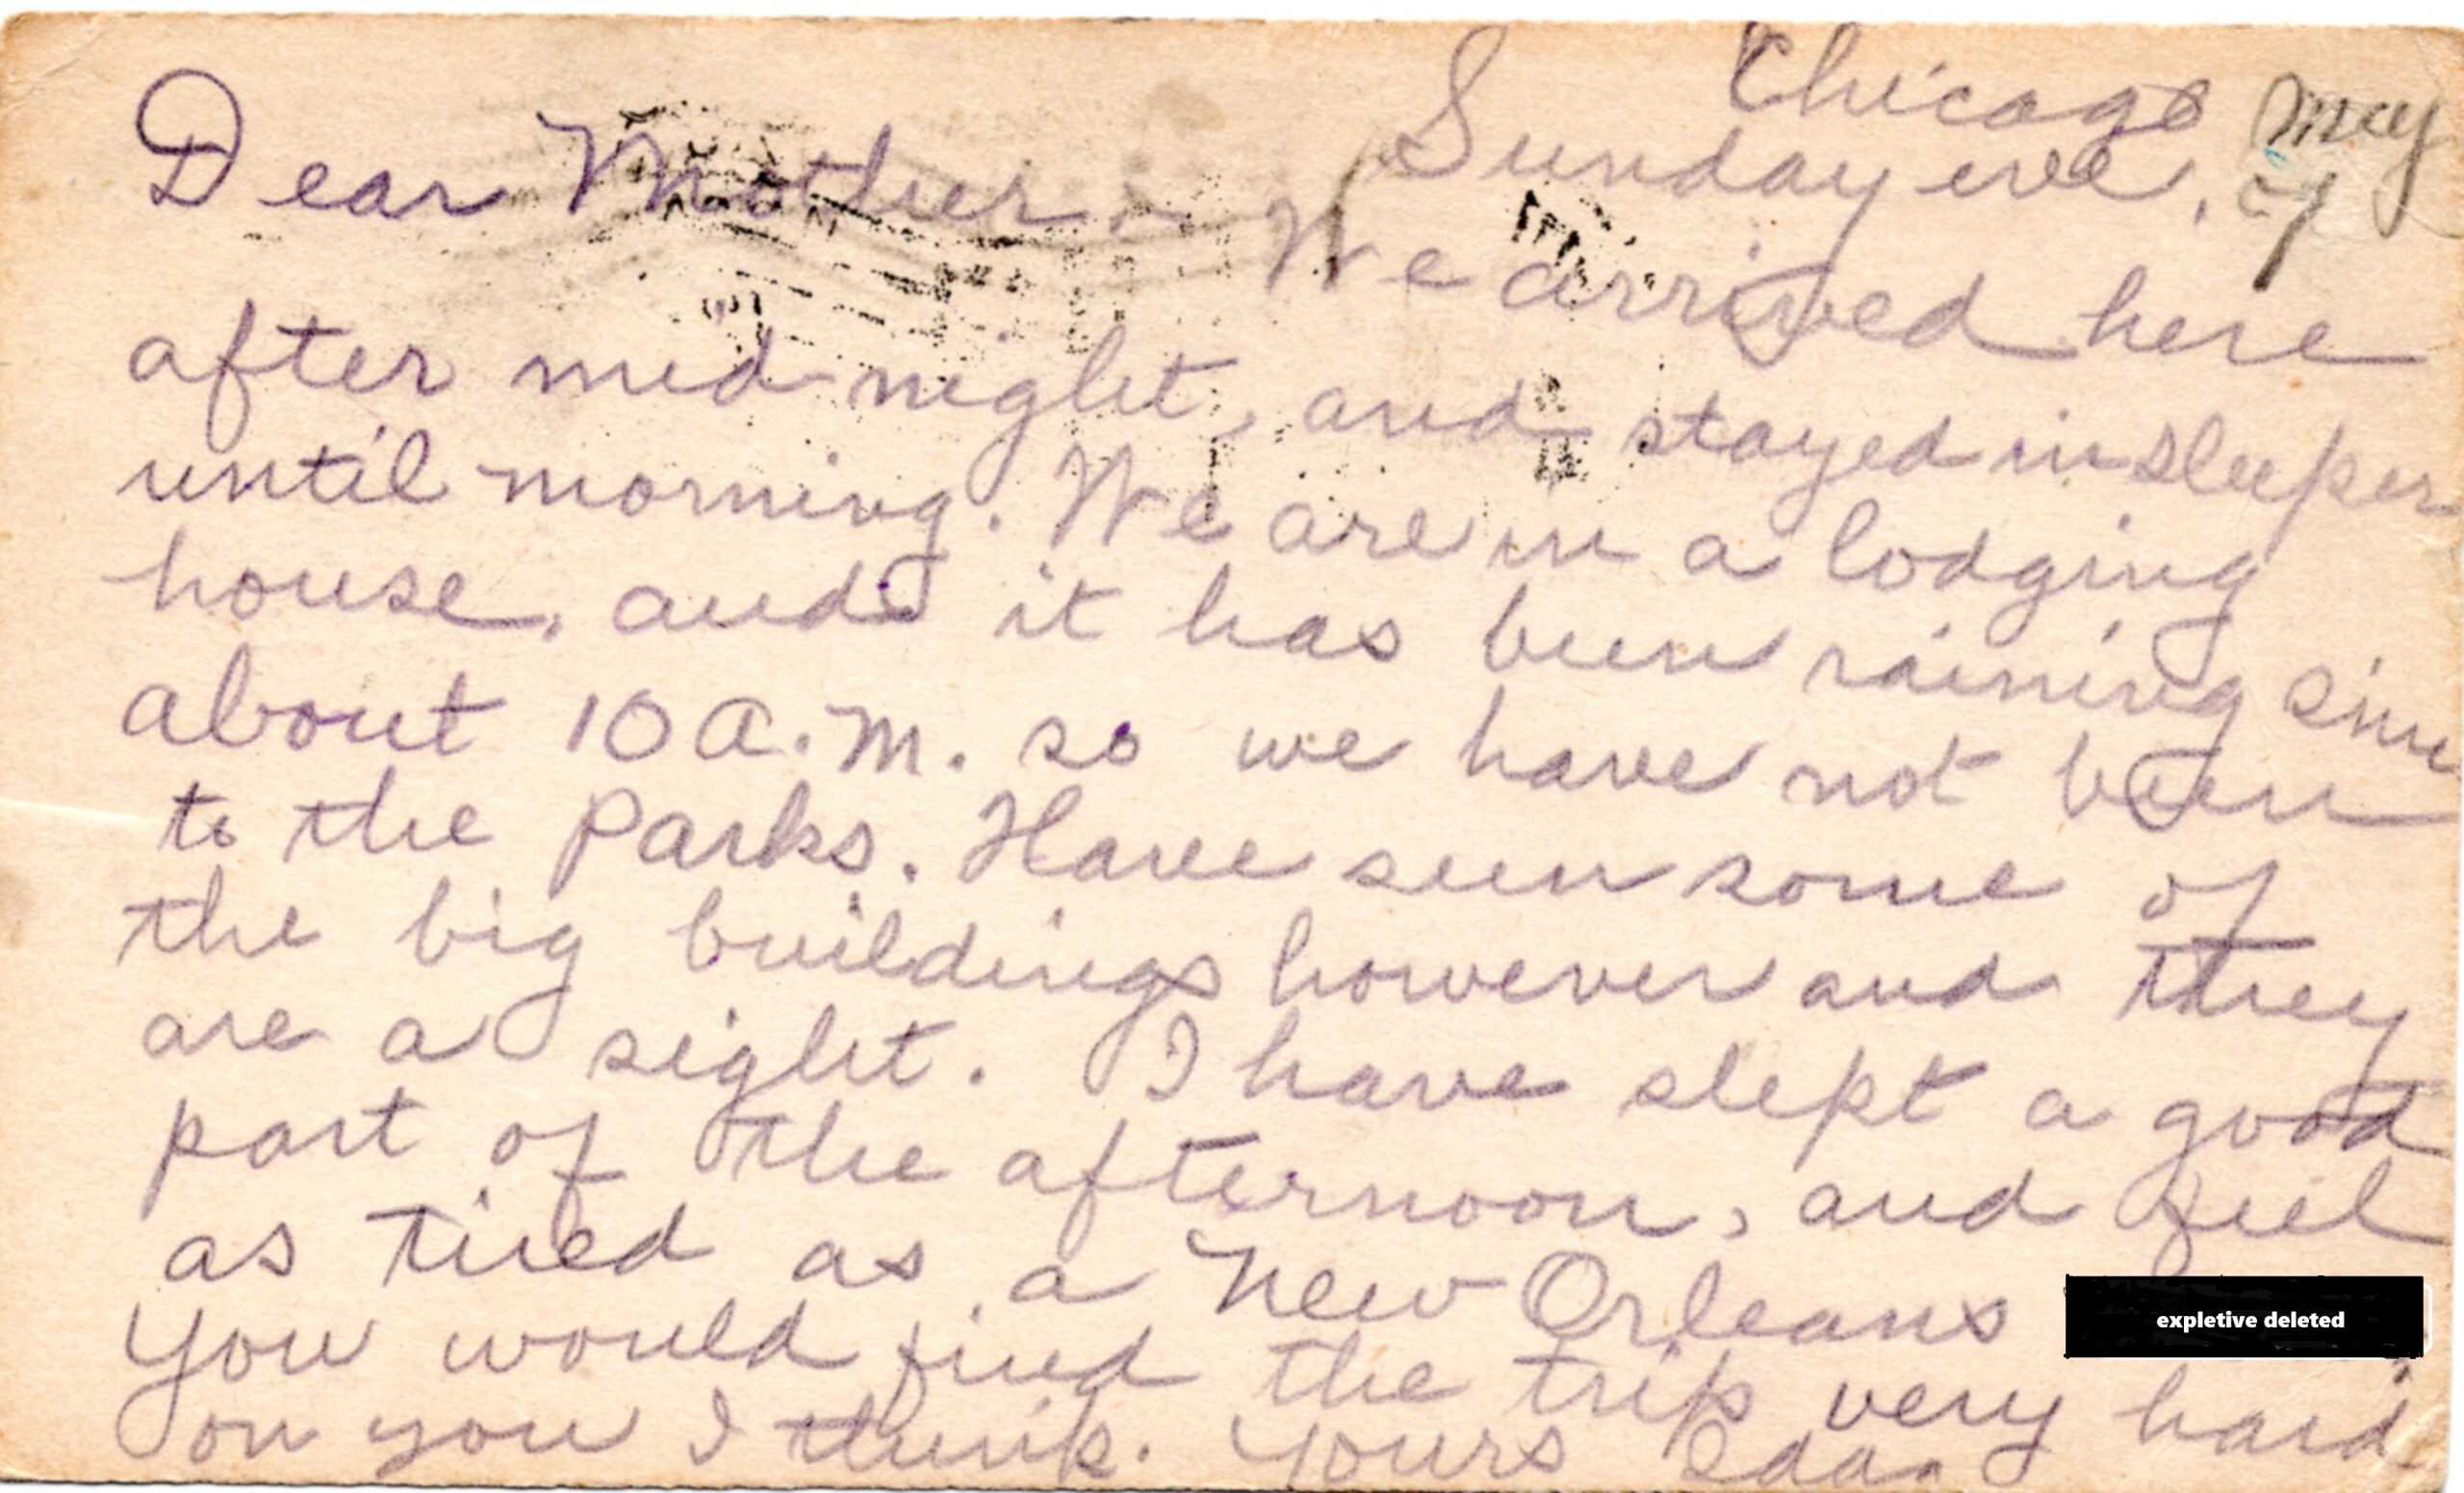 Chicago May
Sunday eve, 27
Dear Mother :- We arrived here
after mid-night, and stayed in sleeper
until morning. We are in a lodging
house, and it has been raining since
about 10 A.M. so we have not been
to the Parks. Have seen some of
the big buildings however and they
are a sight. I have slept a good
part of the afternoon, and feel
as tired as a New Orleans expletive deleted
You would find the trip very hard
on you I think. Yours Edda